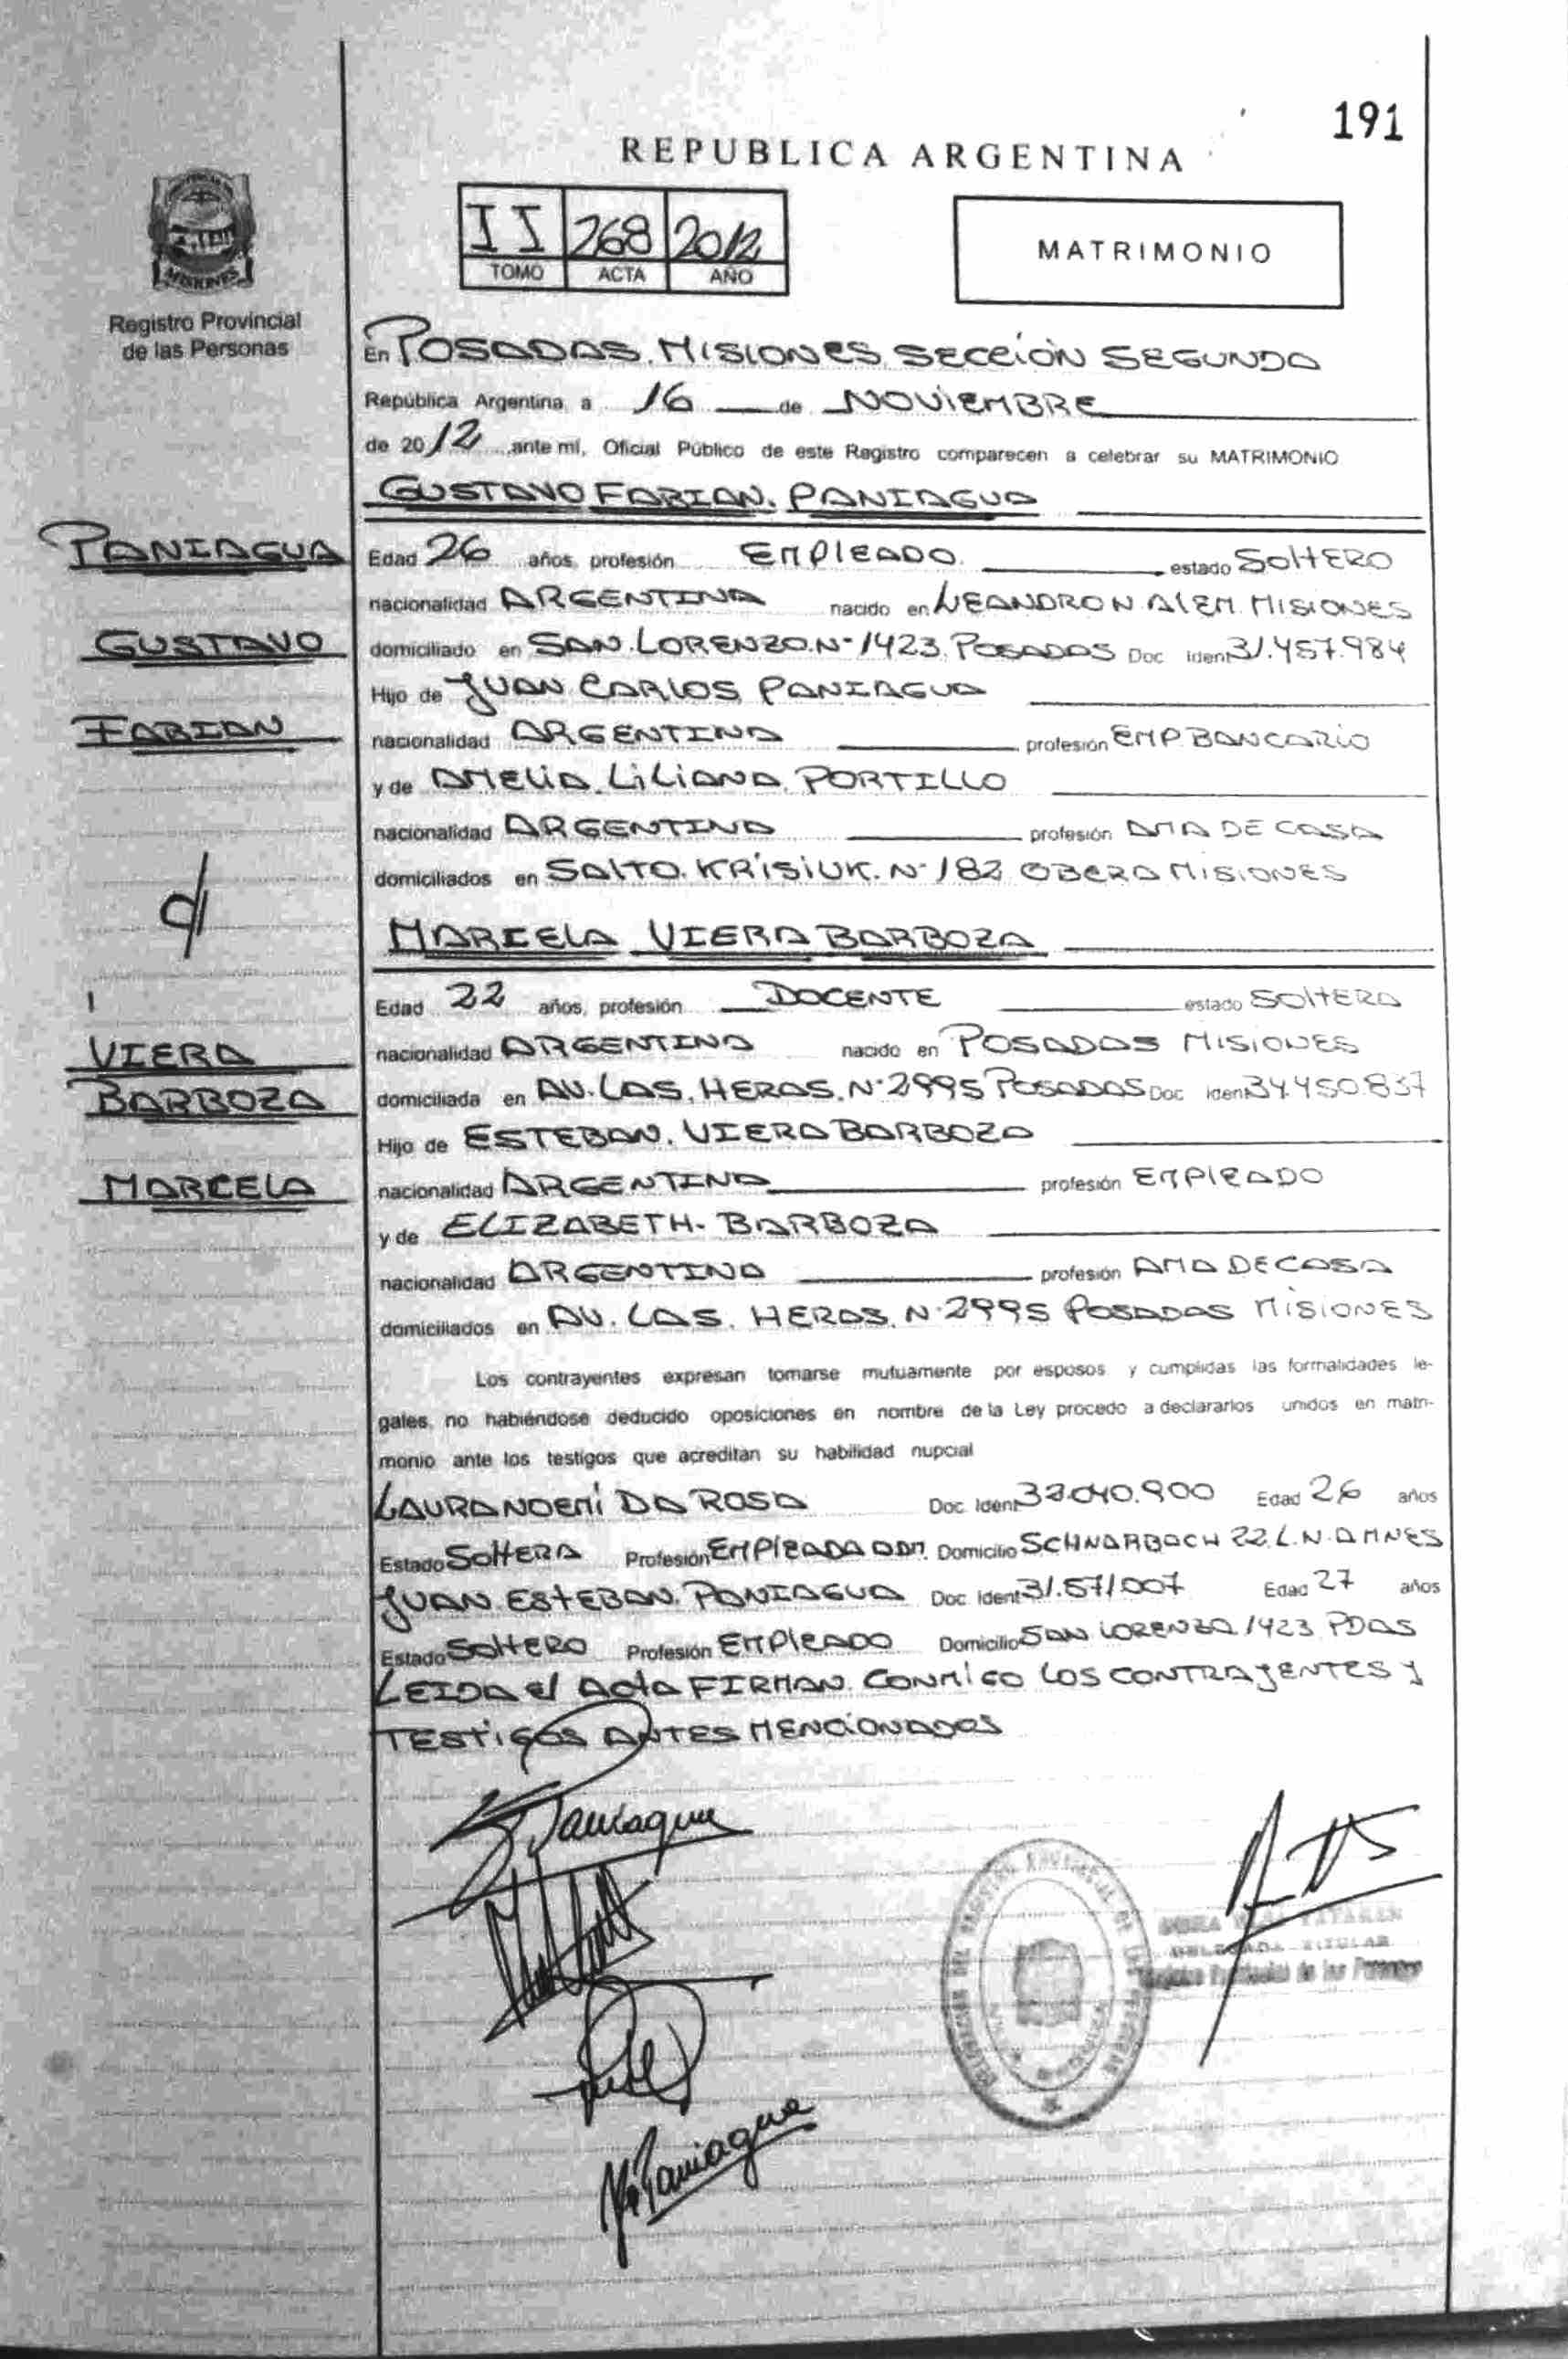 191
REPUBLICA ARGENTINA
II 268 2012
TOMO ACTA AÑO
MATRIMONIO
MISIONES
Registro Provincial
de las Personas
En POSADAS. MISIONES. SECCIÓN SEGUNDA
República Argentina, a 16 de NOVIEMBRE
de 2012 ante mí, Oficial Público de este Registro comparecen a celebrar su MATRIMONIO
GUSTAVO FABIAN. PANIAGUA
PANIAGUA
GUSTAVO
FABIAN
Edad 26 años, profesión EMPLEADO estado SOLTERO
nacionalidad ARGENTINA nacido en LEANDRO N ALEM MISIONES
domiciliado en SAN. LORENZO. N° 1423. POSADAS Doc Ident 31.457.984
Hijo de JUAN CARLOS PANIAGUA
nacionalidad ARGENTINA profesión EMP BANCARIO
y de AMELIA. LILIANA. PORTILLO
nacionalidad ARGENTINA profesión AMA DE CASA
domiciliados en SALTO. KRISIUK. N° 182 OBERA MISIONES
MARCELA VIERA BARBOZA
d
VIERA
BARBOZA
MARCELA
Edad 22 años, profesión DOCENTE estado SOLTERA
nacionalidad ARGENTINA nacido en POSADAS MISIONES
domiciliada en AV. LAS. HERAS. N° 2995 POSADAS Doc Ident 34.450.837
Hijo de ESTEBAN. VIERA BARBOZA
nacionalidad ARGENTINA profesión EMPLEADO
y de ELIZABETH- BARBOZA
nacionalidad ARGENTINA profesión AMA DE CASA
domiciliados en AV. LAS. HERAS. N° 2995 POSADAS MISIONES
Los contrayentes expresan tomarse mutuamente por esposos y cumplidas las formalidades le-
gales, no habiéndose deducido oposiciones en nombre de la Ley procedo a declararlos unidos en matri-
monio ante los testigos que acreditan su habilidad nupcial
LAURA NOEMÍ DA ROSA Doc Ident 33.040.900 Edad 26 años
Estado SOLTERA Profesión EMPLEADA ADM. Domicilio 22. L.N.
JUAN ESTEBAN. PANIAGUA Doc Ident 31.571.007 Edad 27 años
Estado SOLTERO Profesión EMPLEADO Domicilio SAN LORENZO 1423 PDAS
LEIDA el ActA FIRMAN CONMIGO LOS CONTRAYENTES Y
TESTIGOS ANTES MENCIONADOS
Paniagua
Paniagua
DELEGADA TITULAR
Registro Provincial de las Personas